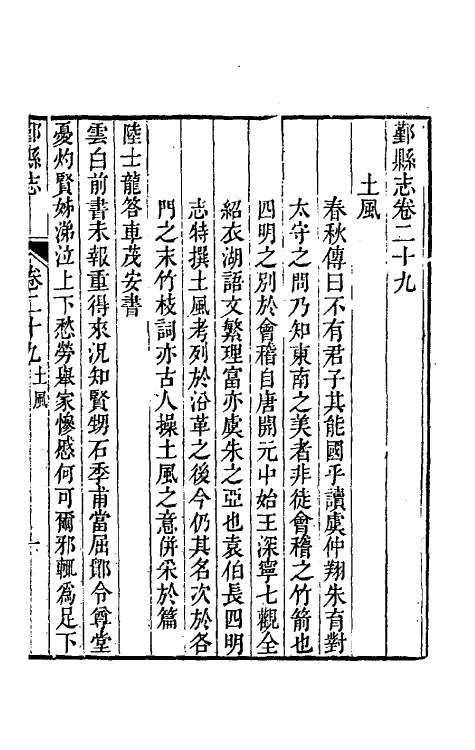 鄞縣志卷二十九
土風
春秋傳曰不有君子其能國乎讀虞仲翔朱育對
太守之問乃知東南之美者非徒會稽之竹箭也
四明之別於會稽自唐開元中始王深寧七觀全
紹衣湖語文繁理富亦虞朱之亞也袁伯長四明
志特撰土風考列於沿革之後今仍其名次於各
門之末竹枝詞亦古人操土風之意併采於篇
陸士龍答車茂安書
雲白前書未報重得來況知賢甥石季甫當屈鄮令尊堂
憂灼賢姊涕泣上下愁勞舉家慘慼何可爾邪輒為足下
鄞縣志
卷二十九
土風
一